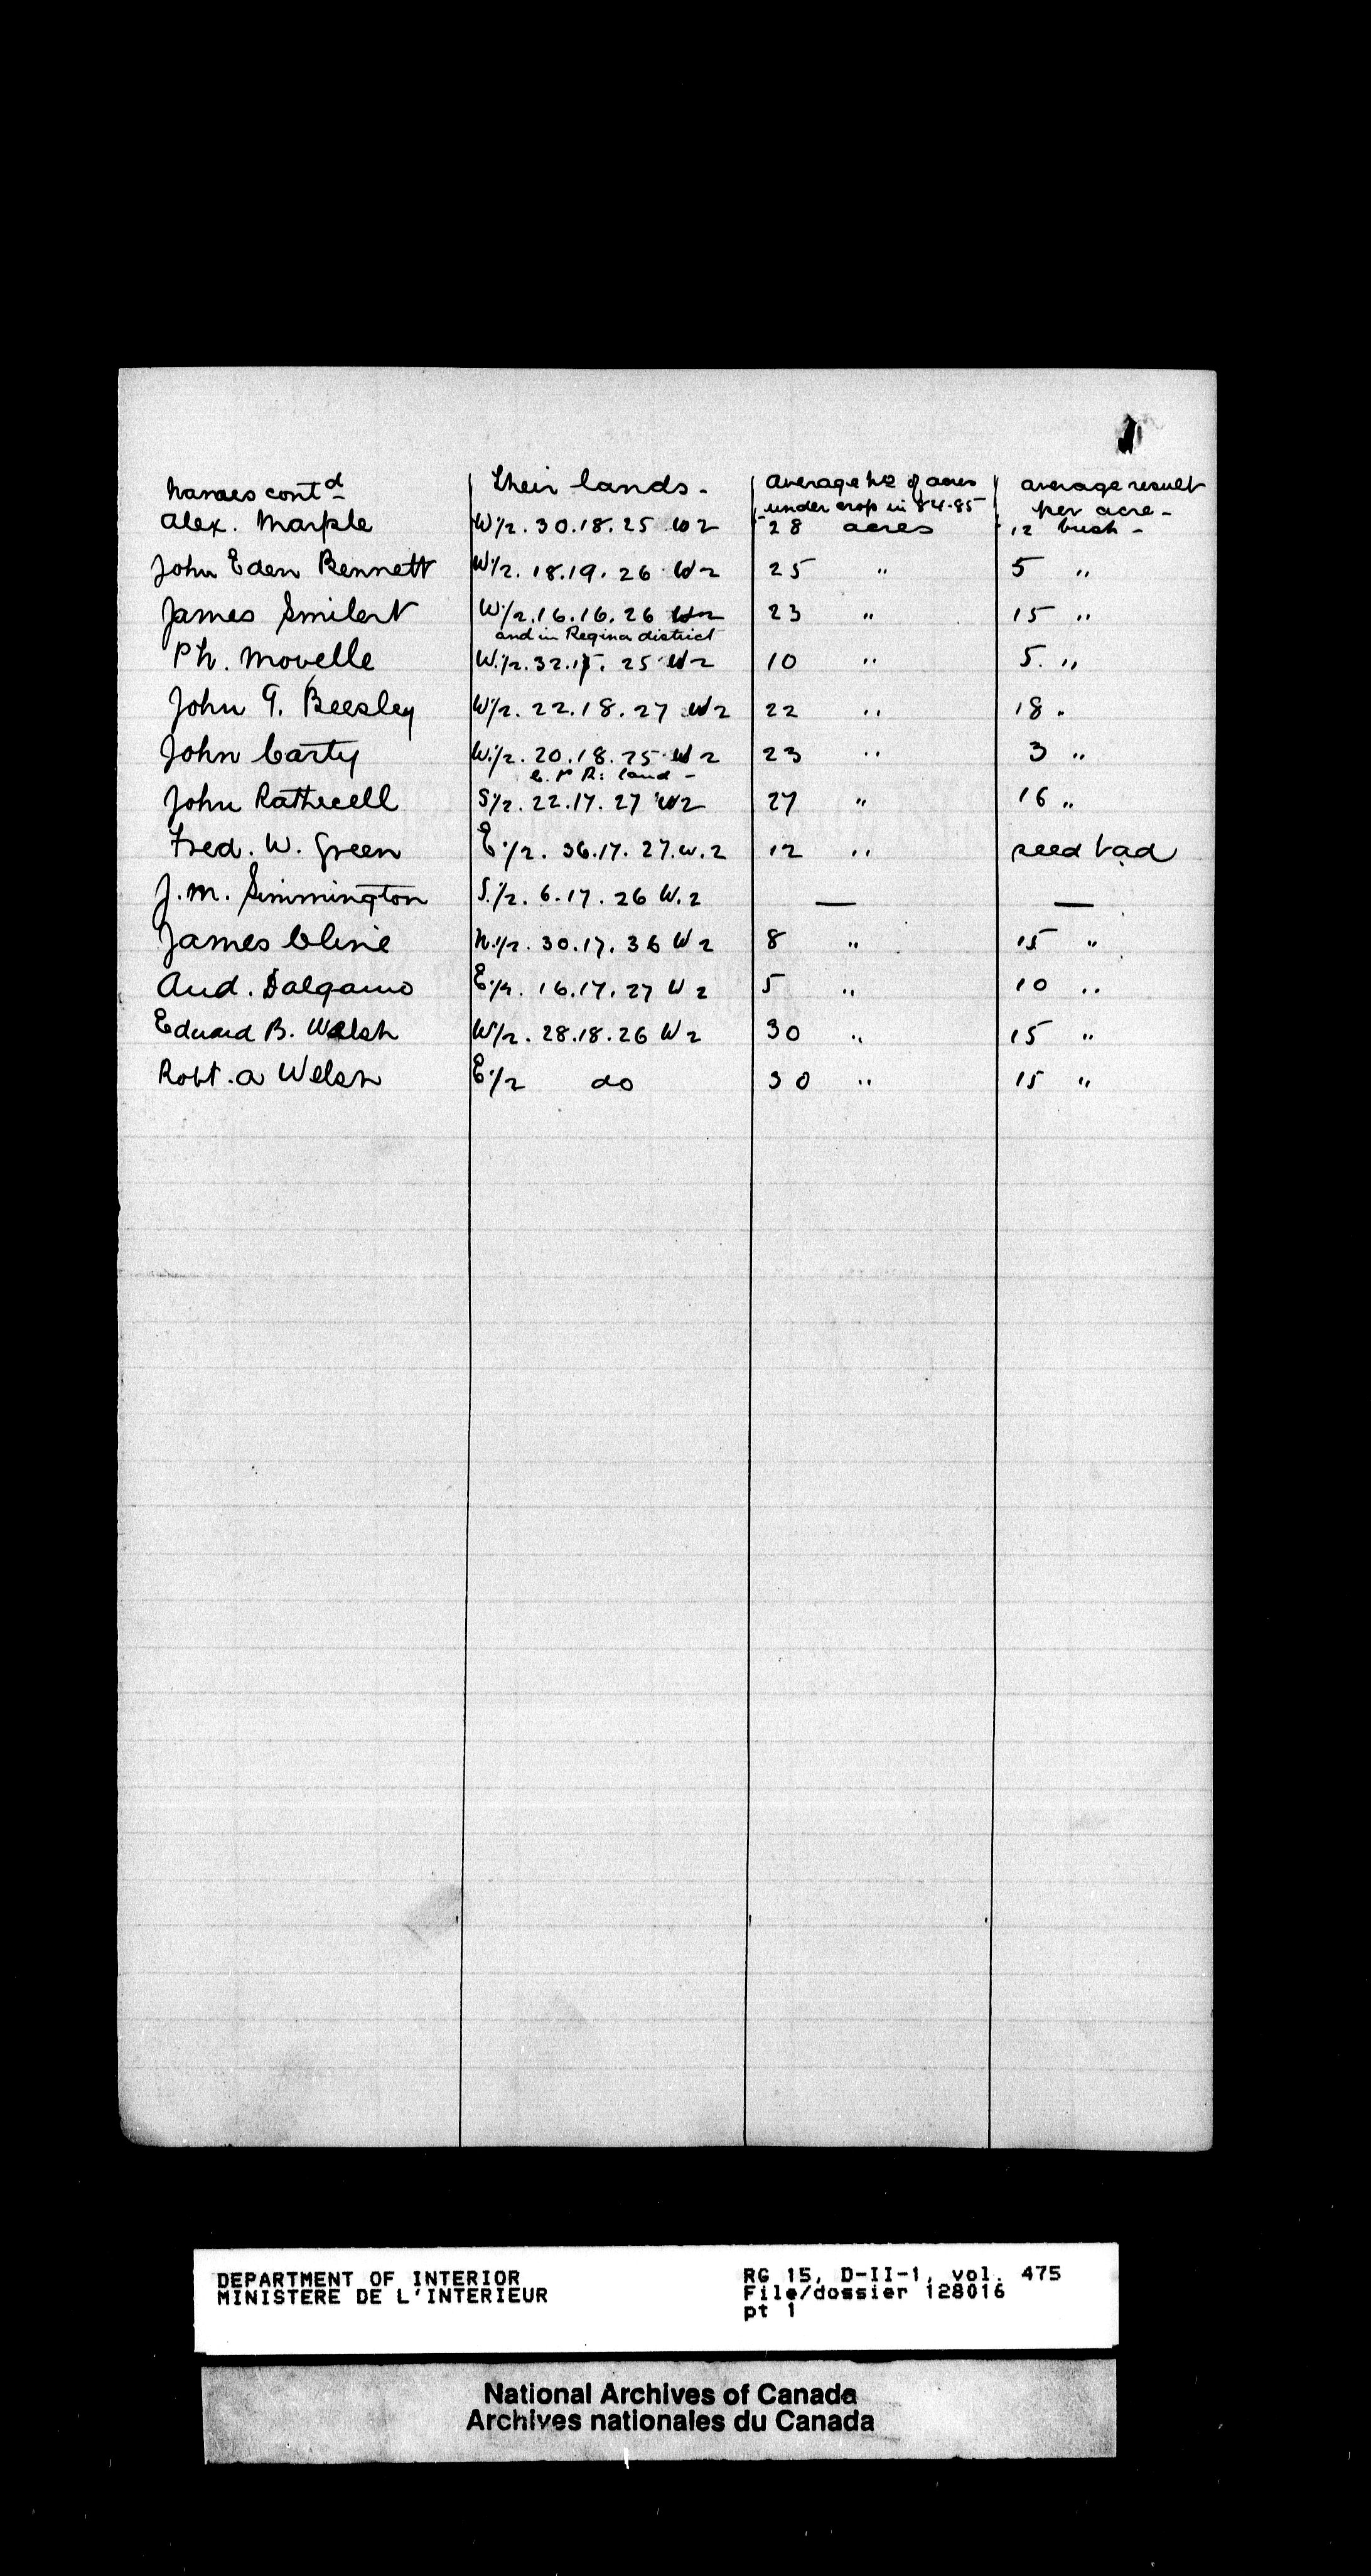 names contd | their lands - | average no of acres under crop in 84-85 | average result per acre -
Alex. Marple | W1/2. 30.18.25 W2 | 28 acres | 12 bush -
John Eden Bennett | W1/2. 18.19.26 W2 | 25 " | 5 "
James Smilert | W1/2. 16.16.26 W2 | 23 " | 15 "
and in Regina district
Ph. Movelle | W.1/2. 32.17. 25 W2 | 10 " | 5. "
John G. Beesley | W1/2. 22.18.27 W2 | 22 " | 18 .
John Carty | W.1/2. 20.18.25 W2 | 23 " | 3 "
C. P R: land -
John Rathwell | S1/2. 22.17.27 W2 | 27 " | 16 "
Fred. W. Green | E.1/2. 36.17.27.W.2 | 12 " | seed bad
J. M. Simmington | S.1/2. 6.17.26 W.2 | — | —
James Cline | N.1/2. 30.17.36 W2 | 8 " | 15 "
And. Dalgarno | E.1/2. 16.17.27 W2 | 5 " | 10 "
Edward B. Welsh | W1/2. 28.18.26 W2 | 30 " | 15 "
Robt. A Welsh | E.1/2 do | 30 " | 15 "
DEPARTMENT OF INTERIOR
MINISTERE DE L'INTERIEUR
RG 15, D-II-1, vol. 475
File/dossier 128016
pt 1
National Archives of Canada
Archives nationales du Canada